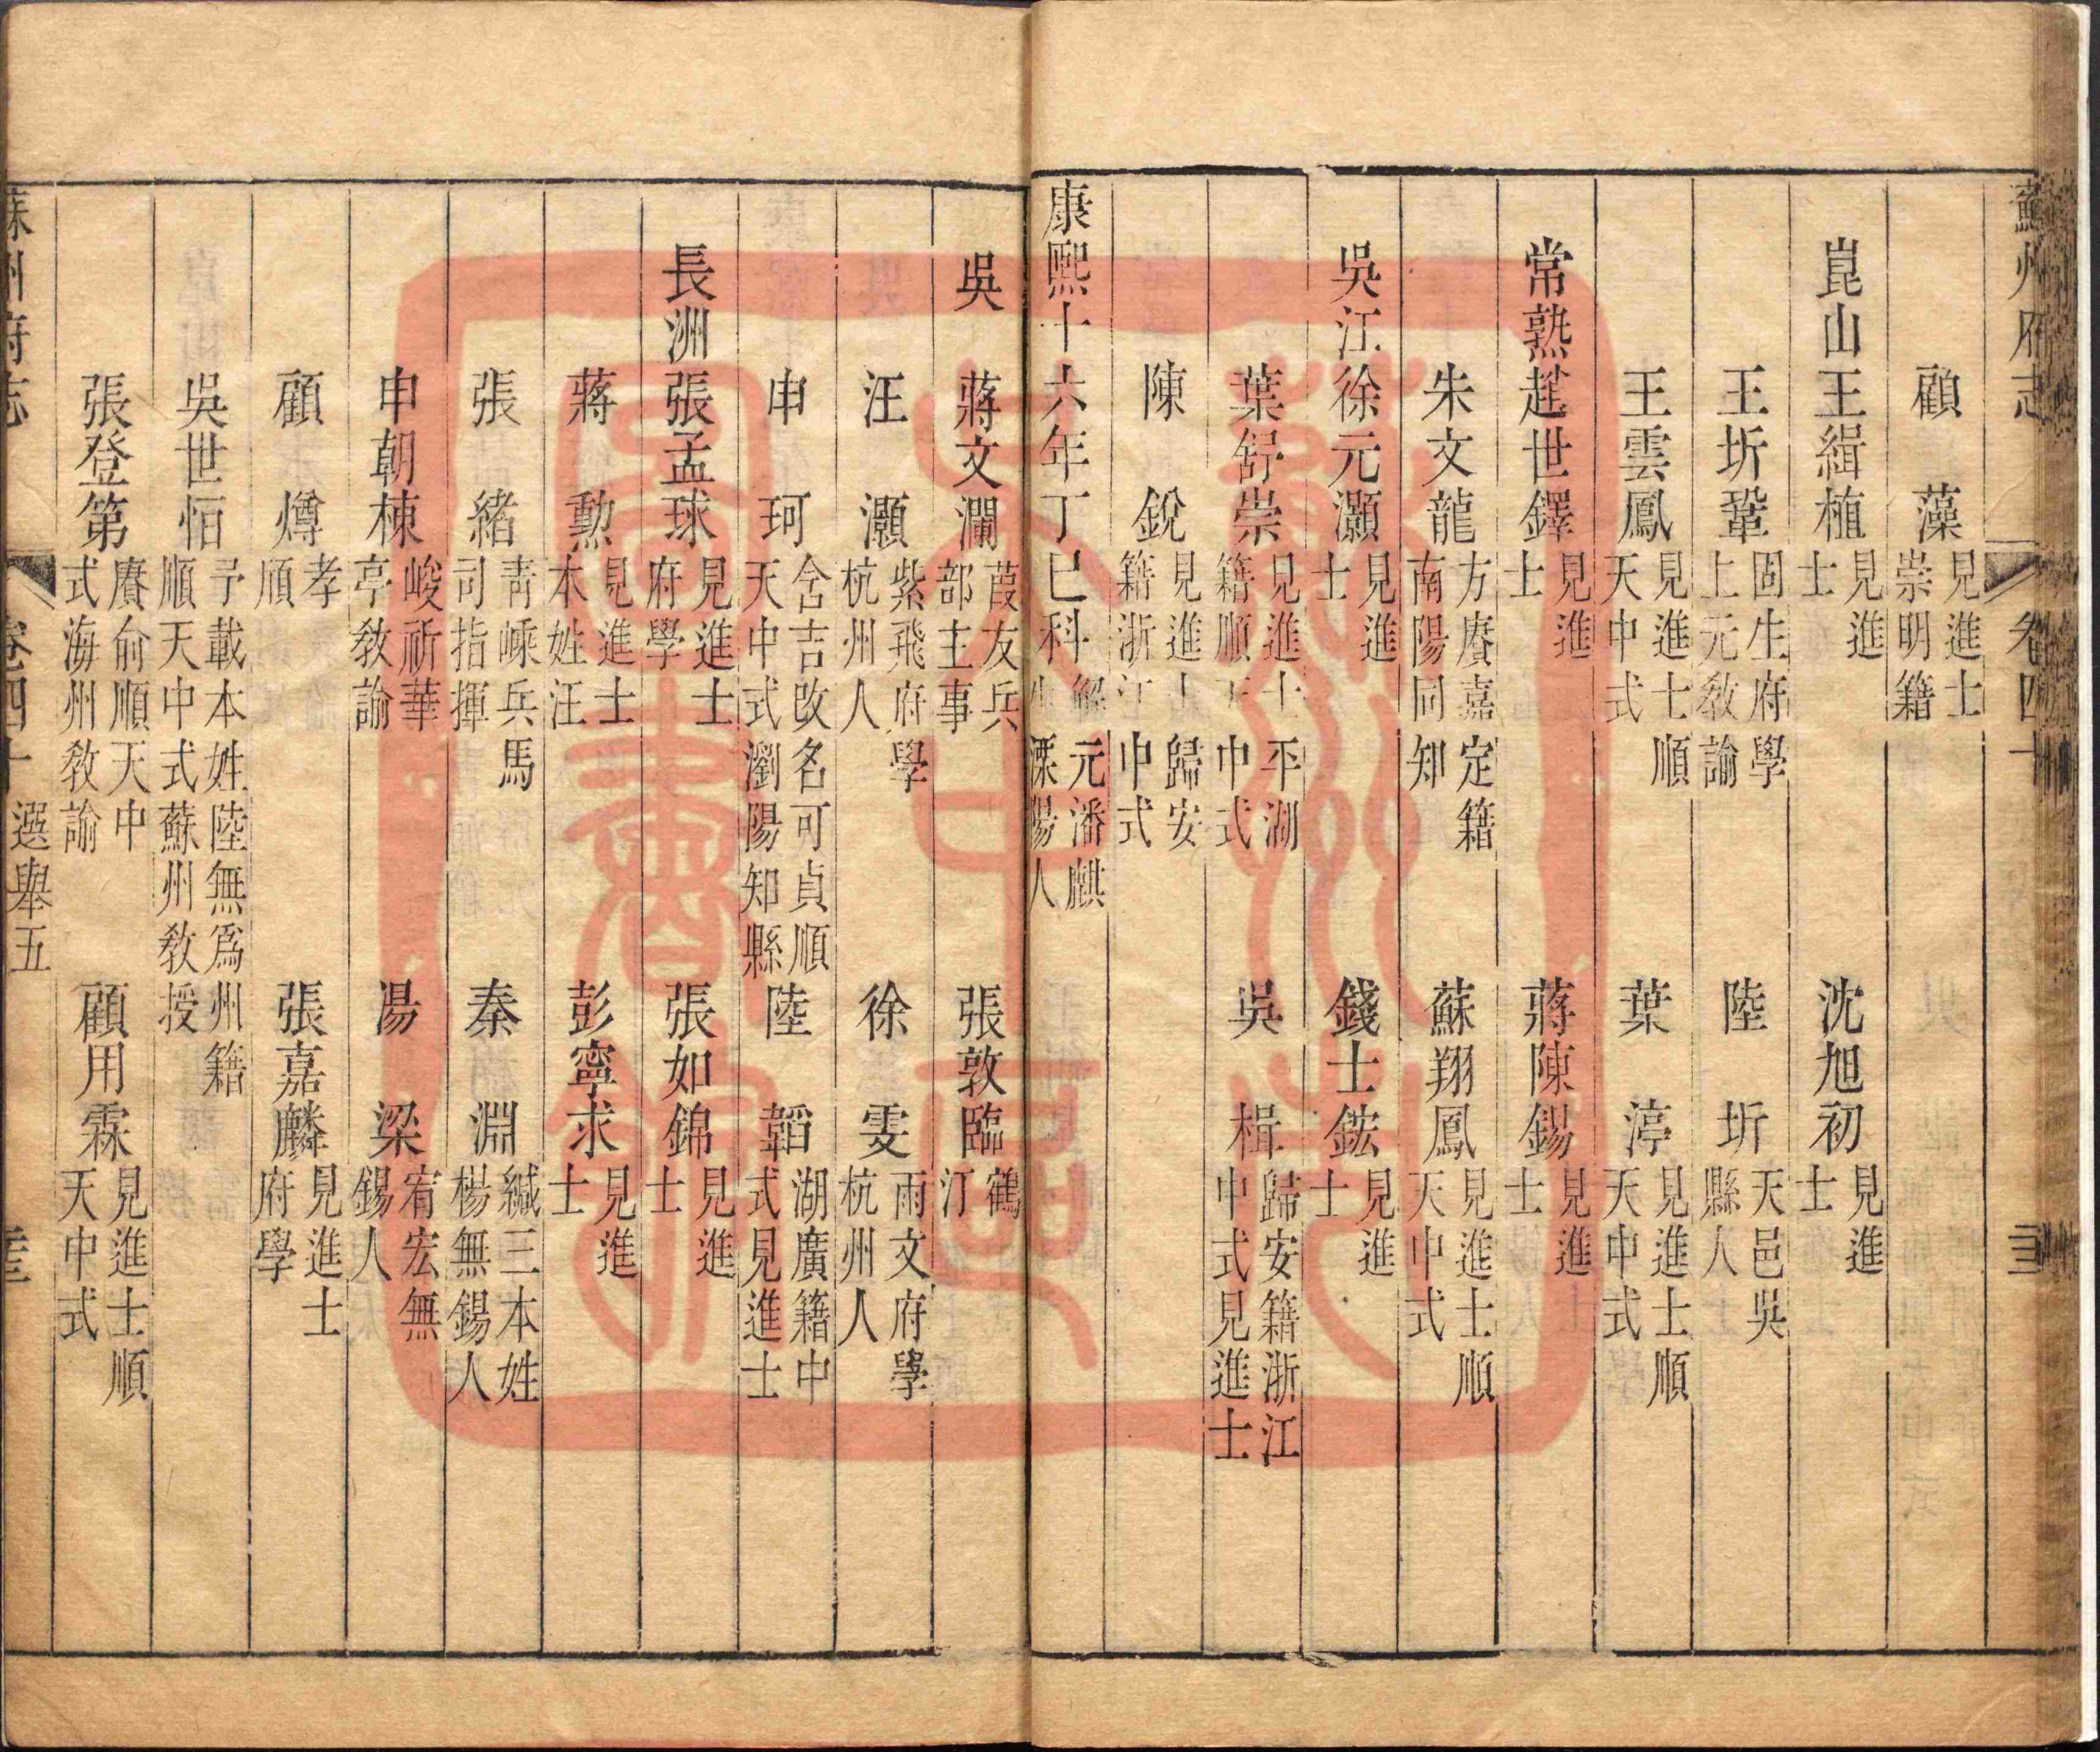 蘇州府志 卷四十
顧藻 見進士崇明籍
崑山王緝植 見進士 沈旭初 見進士
王圻鞏 固生府學上元敎諭 陸圻 天邑吳縣人
王雲鳳 見進士順天中式 葉渟 見進士順天中式
常熟趙世鐸 見進士 蔣陳錫 見進士
朱文龍 方賡嘉定籍南陽同知 蘇翔鳳 見進士順天中式
吳江徐元灝 見進士 錢士鋐 見進士
葉舒崇 見進士平湖籍順天中式 吳楫 歸安籍浙江中式見進士
陳銳 見進士歸安籍浙江中式
康熙十六年丁巳科 解元潘麒溧陽人
吳 蔣文瀾 葭友兵部主事 張敦臨 鶴汀
汪灝 紫飛府學杭州人 徐雯 雨文府學杭州人
申珂 含吉改名可貞順天中式瀏陽知縣 陸韜 湖廣籍中式見進士
長洲張孟球 見進士府學 張如錦 見進士
蔣勲 見進士本姓汪 彭寧求 見進士
張緒 靑嵊兵馬司指揮 秦淵 緘三本姓楊無錫人
申朝棟 峻祈華亭敎諭 湯梁 宥宏無錫人
顧燇 孝順 張嘉麟 見進士府學
吳世恒 予載本姓陸無爲州籍順天中式蘇州敎授
張登第 賡俞順天中式海州敎諭 顧用霖 見進士順天中式
蘇州府志 卷四十 選舉五